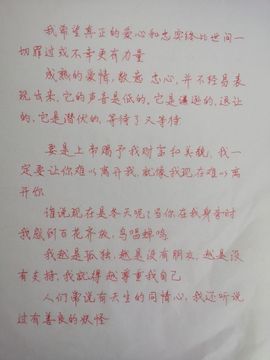 我希望真正的爱心和忠实终比世间一
切罪过或不幸更有力量
成熟的爱情，敬意 忠心，并不轻易表
现出来，它的声音是低的，它是谦逊的，退让
的，它是潜伏的，等待了又等待
要是上帝赐予我财富和美貌，我一
定要让你难以离开我，就像我现在难以离
开你
谁说现在是冬天呢？当你在我身旁时
我感到百花齐放，鸟唱蝉鸣
我越是孤独，越是没有朋友，越是没
有支持，我就得越尊重我自己
人们常说有天生的同情心，我还听说
过有善良的妖怪